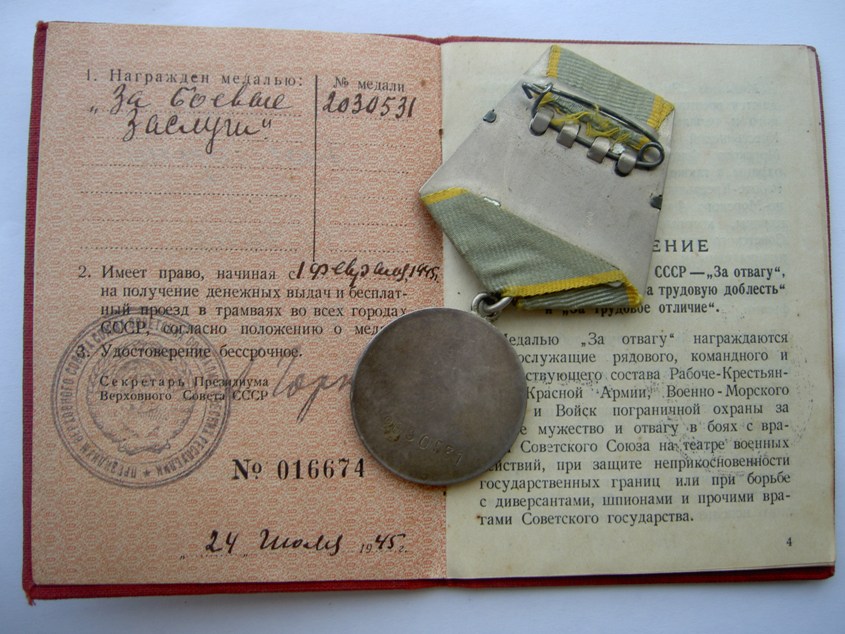 1. Награжден медалью:
№ медали
„За боевые
заслуги“
2030531
2. Имеет право, начиная с 1 февраля 1945,
на получение денежных выдач и бесплат-
ный проезд в трамваях во всех городах
СССР, согласно положению о
3. Удостоверение бессрочное.
Секретарь Президиума
Верховного Совета СССР
№ 016674
„ 24 “ Июля 1945 г.
ЕНИЕ
СССР — „За отвагу“,
а трудовую доблесть“
и „За трудовое отличие“.
Медалью „За отвагу“ награждаются
служащие рядового, командного и
ствующего состава Рабоче-Крестьян-
Красной Армии, Военно-Морского
и Войск пограничной охраны за
мужество и отвагу в боях с вра-
Советского Союза на театре военных
действий, при защите неприкосновенности
государственных границ или при борьбе
с диверсантами, шпионами и прочими вра-
гами Советского государства.
4